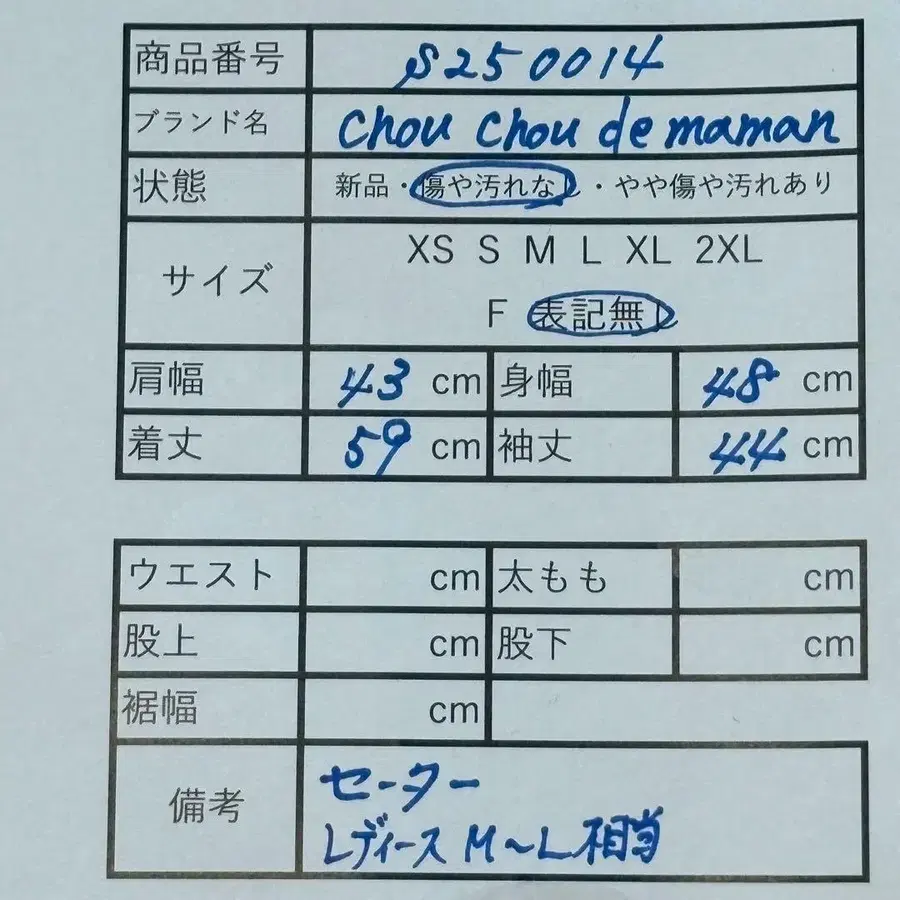 商品番号 S250014
ブランド名 chou chou de maman
状態 新品・傷や汚れなし・やや傷や汚れあり
サイズ XS S M L XL 2XL
F 表記無し
肩幅 43 cm 身幅 48 cm
着丈 59 cm 袖丈 44 cm
ウエスト cm 太もも cm
股上 cm 股下 cm
裾幅 cm
備考 セーター
レディース M〜L相当